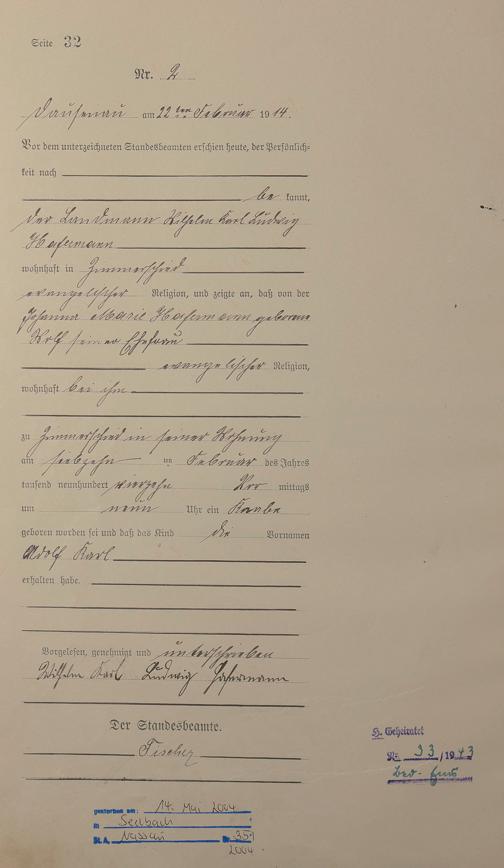 Seite 32
Nr. 2
Dausenau am 22ten Februar 1914.
Vor dem unterzeichneten Standesbeamten erschien heute, der Persönlich-
keit nach
be kannt,
der Landmann Wilhelm Karl Ludwig
Hafermann
wohnhaft in Zimmerschied
evangelischer Religion, und zeigte an, daß von der
Johanna Marie Hafermann geborene
Wolf seiner Ehefrau
evangelischer Religion,
wohnhaft bei ihm
zu Zimmerschied in seiner Wohnung
am siebzehn ten Februar des Jahres
tausend neunhundert vierzehn Vor mittags
um neun Uhr ein Knabe
geboren worden sei und daß das Kind die Vornamen
Adolf Karl
erhalten habe.
Vorgelesen, genehmigt und unterschrieben
Wilhelm Karl Ludwig Hafermann
Der Standesbeamte.
Fischer
Geheiratet
Nr. 33/1943
gestorben am: 14. Mai 2004
in Seelbach
St. A. Nassau Nr. 35
2004